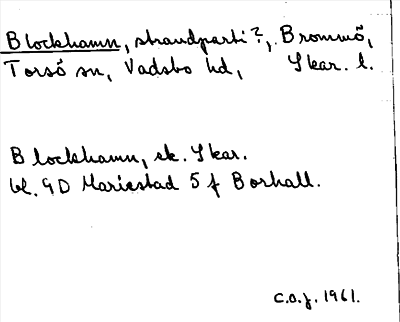 Blockhamn, strandparti?, Brommö,
Torsö sn, Vadsbo hd, Skar. l.
Blockhamn, ek. Skar.
bl. 9D Mariestad 5 f Borhall.
C.O.J. 1961.